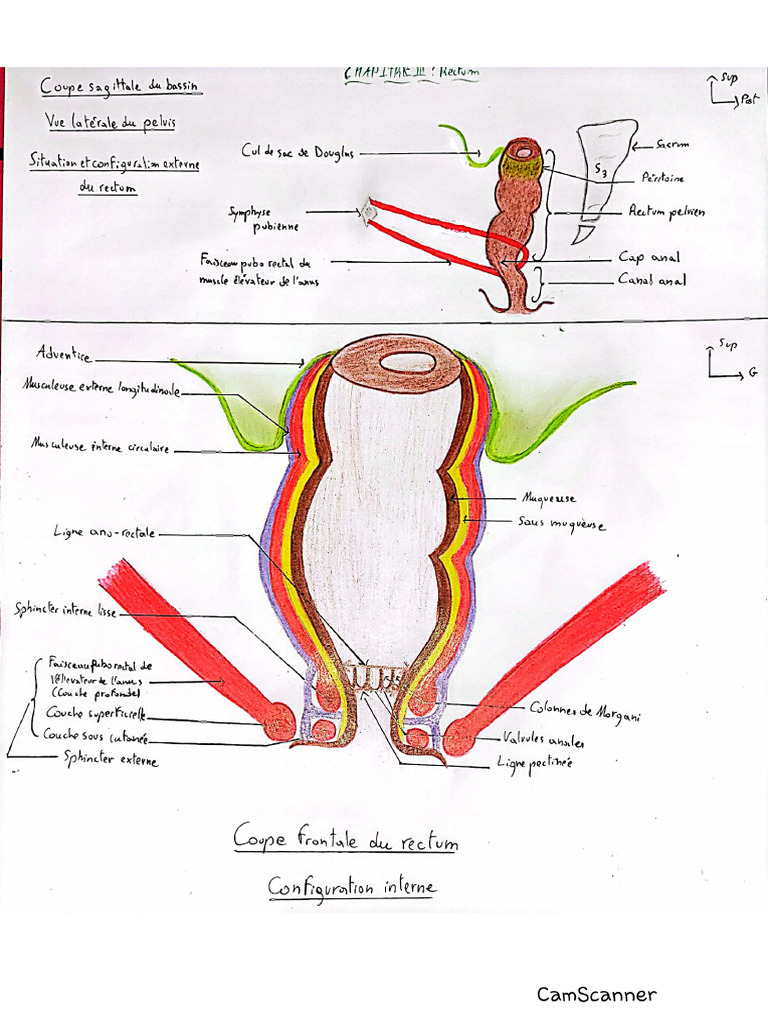 CHAPITRE III : Rectum
Coupe sagittale du bassin
Vue latérale du pelvis
Situation et configuration externe
du rectum
Sup
Post
Cul de sac de Douglas
Sacrum
S3
Péritoine
Symphyse
pubienne
Rectum pelvien
Faisceau pubo rectal du
muscle élévateur de l'anus
Cap anal
Canal anal
Sup
G
Adventice
Musculeuse externe longitudinale
Musculeuse interne circulaire
Muqueuse
Sous muqueuse
Ligne ano-rectale
Sphincter interne lisse
Faisceau pubo rectal de
l'élevateur de l'anus
(Couche profonde)
Couche superficielle
Couche sous cutanée
Sphincter externe
Colonnes de Morgani
Valvules anales
Ligne pectinée
Coupe frontale du rectum
Configuration interne
CamScanner